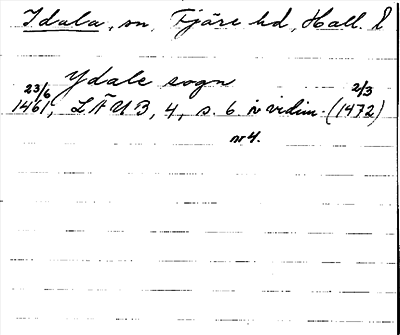 Idala, sn, Fjäre hd, Hall. l
Ydale sogn
23/6 2/3
1461, LÄUB, 4, s. 6 i vidim. (1472)
nr 4.